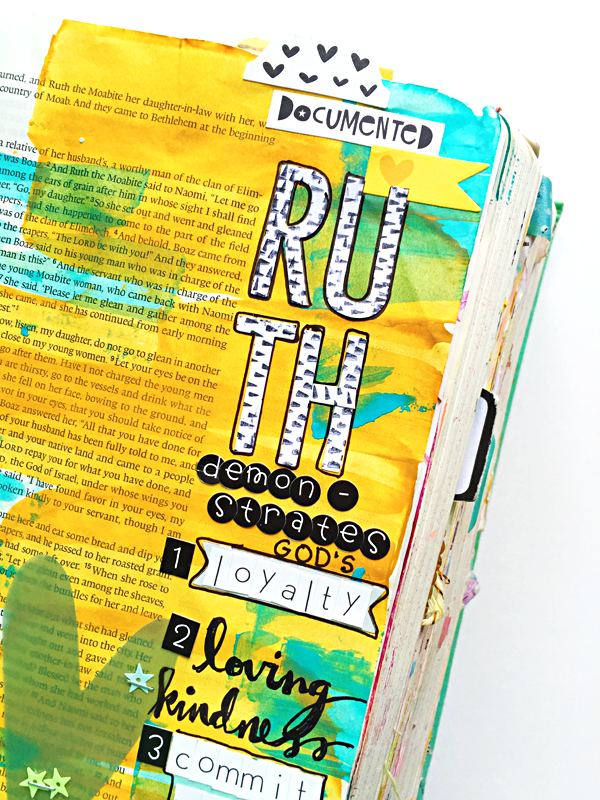 urned, and Ruth the Moabite her daughter-in-law with her, w
country of Moab. And they came to Bethlehem at the beginning
a relative of her husband's, a worthy man of the clan of Elim-
was Boaz. 2 And Ruth the Moabite said to Naomi, "Let me go
among the ears of grain after him in whose sight I shall find
her, "Go, my daughter." 3 So she set out and went and gleaned
apers, and she happened to come to the part of the field
was of the clan of Elimelech. 4 And behold, Boaz came from
the reapers, "The LORD be with you!" And they answered,
en Boaz said to his young man who was in charge of the
man is this?" 6 And the servant who was in charge of the
he young Moabite woman, who came back with Naomi
7 She said, 'Please let me glean and gather among the
she came, and she has continued from early morning
est."
ow, listen, my daughter, do not go to glean in another
close to my young women. 9 Let your eyes be on the
go after them. Have I not charged the young men
are thirsty, go to the vessels and drink what the
she fell on her face, bowing to the ground, and
vor in your eyes, that you should take notice of
Boaz answered her, "All that you have done for
of your husband has been fully told to me, and
er and your native land and came to a people
LORD repay you for what you have done, and
D, the God of Israel, under whose wings you
said, "I have found favor in your eyes, my
oken kindly to your servant, though I am
ome here and eat some bread and dip yo
eapers, and he passed to her roasted grain
had some left over. 15 When she rose to
"Let her glean even among the sheaves,
the bundles for her and leave
what she had gleaned.
went into the city. Her
DOCUMENTED
RU
TH
demon-
strates
GOD'S
1 loyalty
2 loving
kindness
3 commit